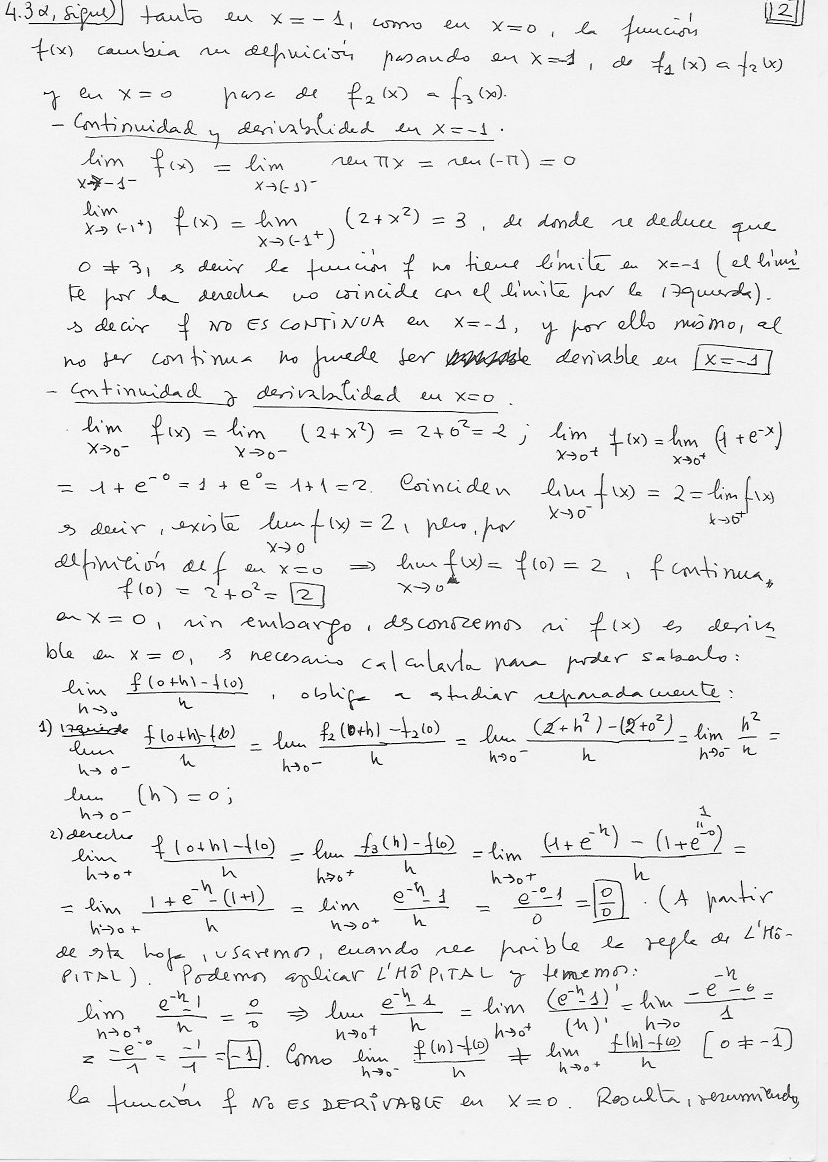 4.3α, sigue) tanto en x=-1, como en x=0, la función [2]
f(x) cambia su definición pasando en x=-1, de f₁(x) a f₂(x)
y en x=0 pasa de f₂(x) a f₃(x).
- Continuidad y derivabilidad en x=-1.
lim_{x→-1⁻} f(x) = lim_{x→(-1)⁻} sen πx = sen(-π) = 0
lim_{x→(-1⁺)} f(x) = lim_{x→(-1⁺)} (2+x²) = 3, de donde se deduce que
0 ≠ 3, es decir la función f no tiene límite en x=-1 (el lími
te por la derecha no coincide con el límite por la izquierda).
es decir f NO ES CONTINUA en x=-1, y por ello mismo, al
no ser continua no puede ser derivable en [x=-1]
- Continuidad y derivabilidad en x=0.
lim_{x→0⁻} f(x) = lim_{x→0⁻} (2+x²) = 2+0² = 2 ; lim_{x→0⁺} f(x) = lim_{x→0⁺} (1+e^{-x})
= 1+e^{-0} = 1+e^{0} = 1+1 = 2. Coinciden lim_{x→0⁻} f(x) = 2 = lim_{x→0⁺} f(x)
es decir, existe lim_{x→0} f(x) = 2, pero, por
definición de f en x=0 ⇒ lim_{x→0} f(x) = f(0) = 2, f continua,
f(0) = 2+0² = [2]
en x=0, sin embargo, desconocemos si f(x) es deriva
ble en x=0, es necesario calcularla para poder saberlo:
lim_{h→0} (f(0+h)-f(0))/h, obliga a estudiar separadamente:
1) izquierda lim_{h→0⁻} (f(0+h)-f(0))/h = lim_{h→0⁻} (f₂(0+h)-f₂(0))/h = lim_{h→0⁻} ((2+h²)-(2+0²))/h = lim_{h→0⁻} h²/h =
lim_{h→0⁻} (h) = 0;
2) derecha lim_{h→0⁺} (f(0+h)-f(0))/h = lim_{h→0⁺} (f₃(h)-f(0))/h = lim_{h→0⁺} ((1+e^{-h})-(1+e^{-0}))/h =
= lim_{h→0⁺} (1+e^{-h}-(1+1))/h = lim_{h→0⁺} (e^{-h}-1)/h = (e^{-0}-1)/0 = [0/0]. (A partir
de esta hoja, usaremos, cuando sea posible la regla de L'HÔ-
PITAL). Podemos aplicar L'HÔPITAL y tenemos:
lim_{h→0⁺} (e^{-h}-1)/h = 0/0 ⇒ lim_{h→0⁺} (e^{-h}-1)/h = lim_{h→0⁺} (e^{-h}-1)'/(h)' = lim_{h→0} (-e^{-h}-0)/1 =
= -e^{-0}/1 = -1/1 = [-1]. Como lim_{h→0⁻} (f(h)-f(0))/h ≠ lim_{h→0⁺} (f(h)-f(0))/h [0 ≠ -1]
la función f NO ES DERIVABLE en x=0. Resulta, resumiendo,